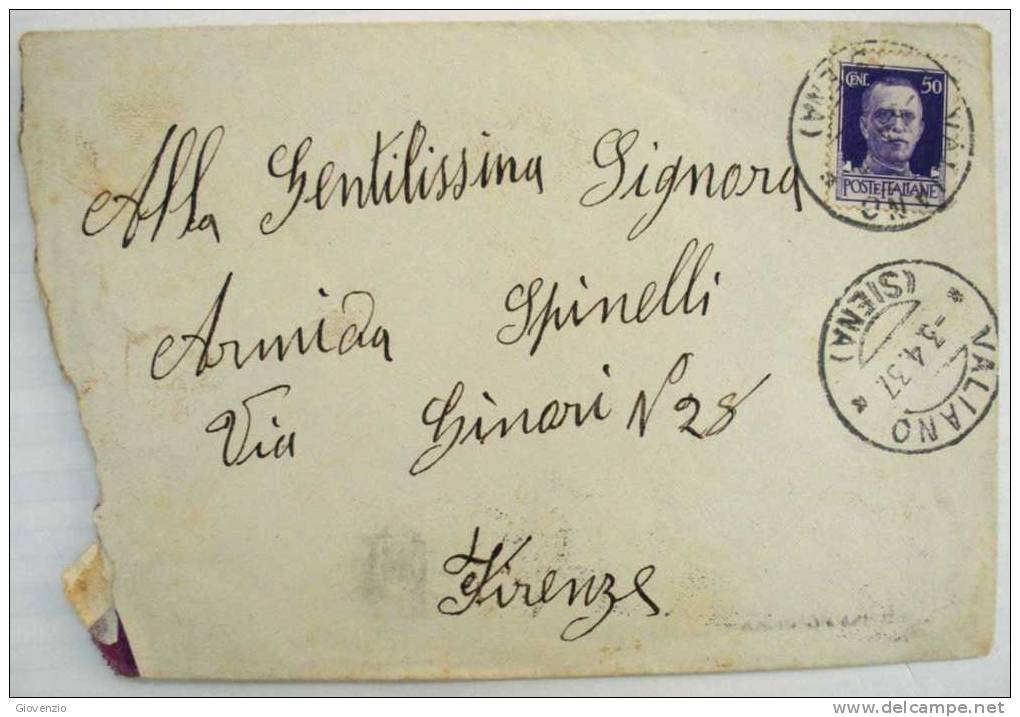 CENT. 50
POSTE ITALIANE
VALIANO
(SIENA)
Alla Gentilissima Signora
Armida Spinelli
Via Ginori N 28
Firenze
VALIANO
(SIENA)
-3.4.37.
Giovenzio
delcampe.net